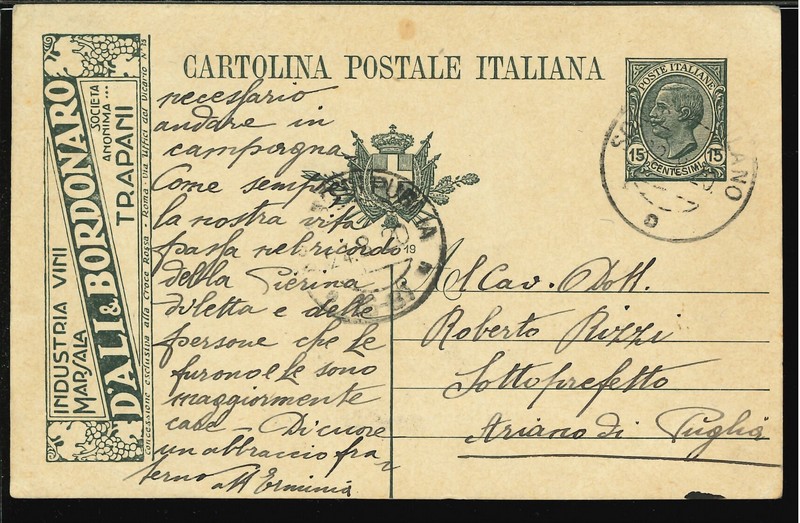 CARTOLINA POSTALE ITALIANA
POSTE ITALIANE
15 15
CENTESIMI
INDUSTRIA VINI
MARSALA
DALI & BORDONARO
SOCIETA
ANONIMA
TRAPANI
Concessione esclusiva alla Croce Rossa - Roma - via Uffici del Vicario N° 15
necessario
andare in
campagna
Come sempre
la nostra vita
passa nel ricordo
della Pierina
diletta e delle
persone che Le
furono e Le sono
maggiormente
care - Di cuore
un abbraccio fra-
terno aff Erminia
19
Al Cav. Dott.
Roberto Rizzi
Sottoprefetto
Ariano di Puglia